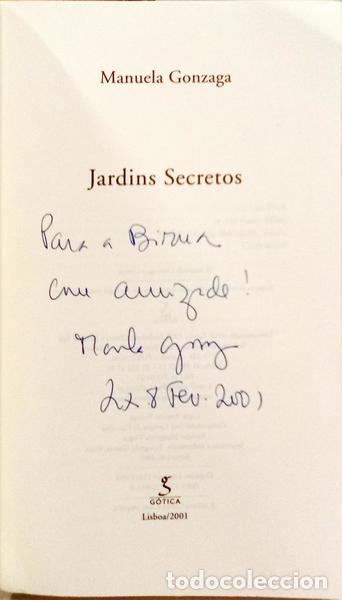 Manuela Gonzaga
Jardins Secretos
Para a
com amizade!
Lx 8 Fev. 2001
g
GÓTICA
Lisboa/2001
todocoleccion